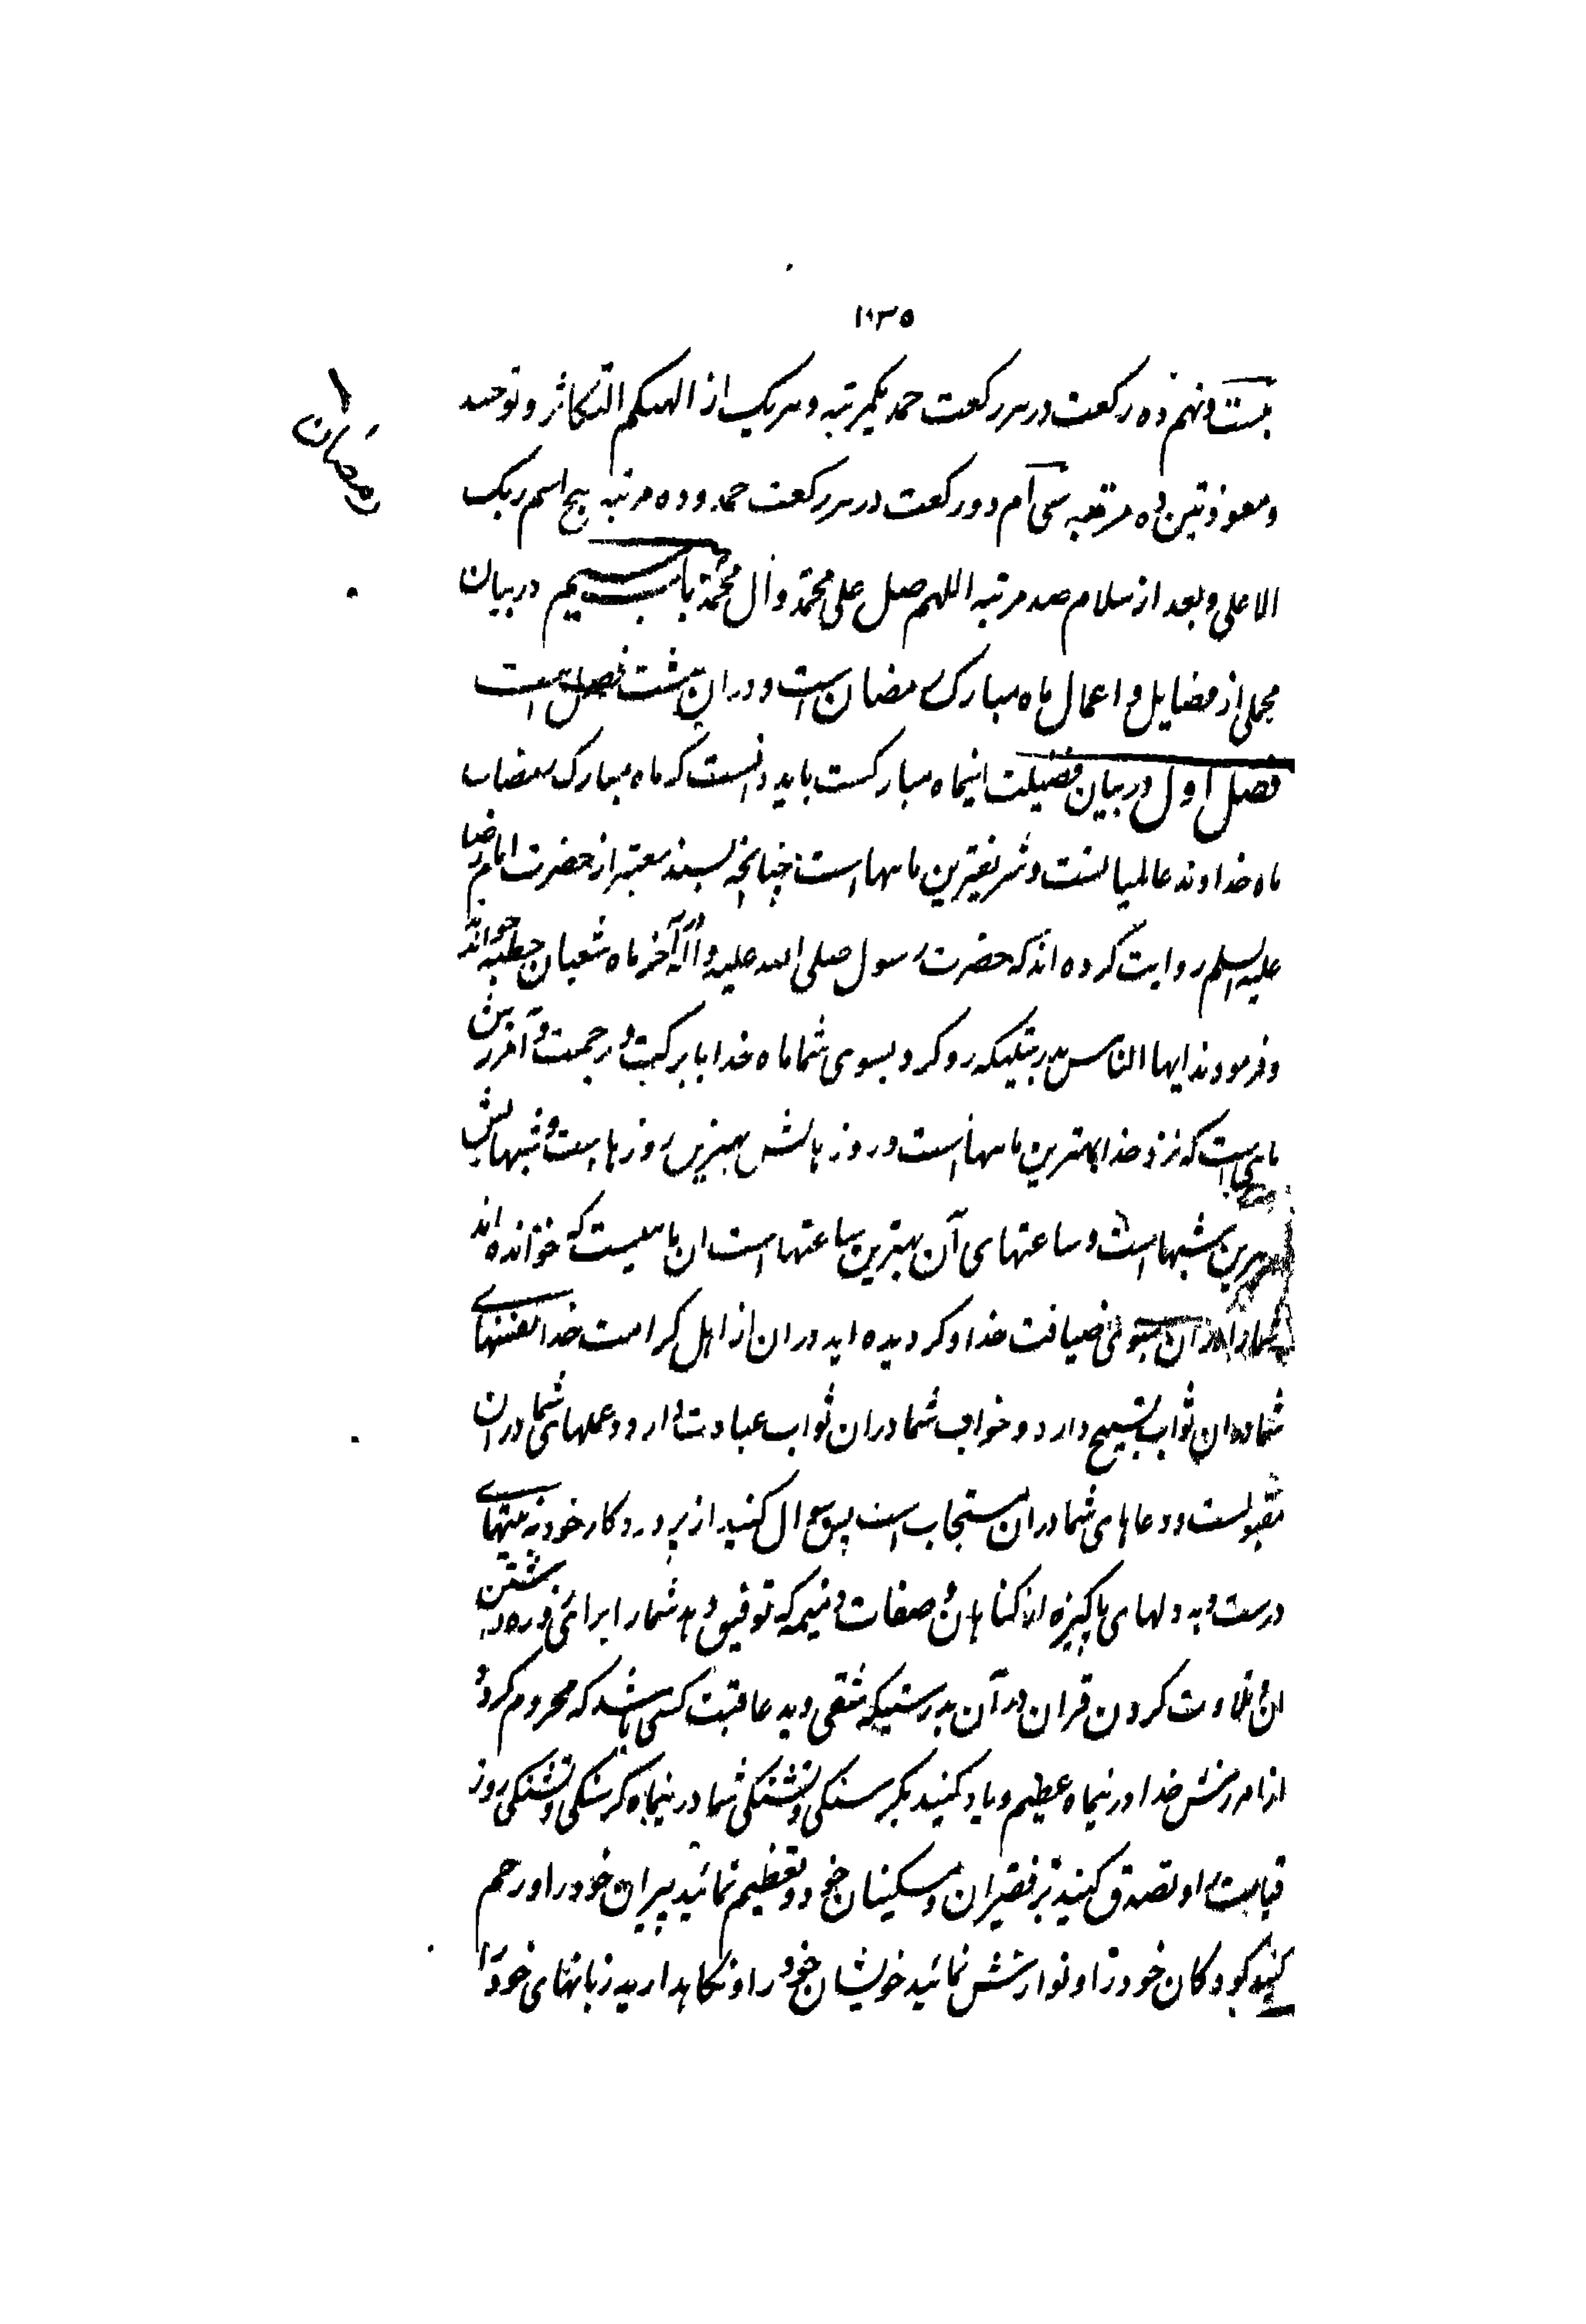 ۱۰۳۵
رمضان
بیست و نهم ده رکعت در هر رکعت حمد یکمرتبه و هر یک از الهیکم التکاثر و توحید
و معوذتین ده مرتبه سی ام دو رکعت در هر رکعت حمد و ده مرتبه سبح اسم ربک
الاعلی و بعد از سلام صد مرتبه اللهم صل علی محمد و آل محمد باب سیم در بیان
مجملی از فضایل و اعمال ماه مبارک رمضان است و در ان هشت فصل است
فصل اول در بیان فضیلت اینماه مبارکست باید دانست که ماه مبارک رمضان
ماه خداوند عالمیانست و شریفترین ماهها است چنانچه بسند معتبر از حضرت امام رضا
علیه السلم روایت کرده اند که حضرت رسول صلی الله علیه و آله در آخر ماه شعبان خطبه خواندند
و فرمودند ایها الناس بدرستیکه رو کرد بسوی شما ماه خدا با برکت و رحمت و آمرزش این
ماهی است که نزد خدا بهترین ماهها است و روزهایش بهترین روزها است و شبهایش
بهترین شبها است و ساعتهای آن بهترین ساعتها است ان ماهیست که خوانده اند
شما را در ان بسوی ضیافت خدا و کردیده اید در ان از اهل کرامت خدا نفسهای
شما در ان ثواب تسبیح دارد و خواب شما در ان ثواب عبادت دارد و عملهای شما در ان
مقبولست و دعاهای شما در ان مستجاب است پس سوال کنید از پروردکار خود به نیتهای
درست و به دلهای پاکیزه از کناهان و صفات ذمیمه که توفیق دهد شما را برای روزه داشتن
ان و تلاوت کردن قران در آن بدرستیکه شقی و بد عاقبت کسی باشد که محروم کردد
از امرزش خدا در اینماه عظیم و یاد کنید بکرسنکی و تشنکی شما در اینماه کرسنکی و تشنکی روز
قیامت را و تصدق کنید بر فقیران و مسکینان خود و تعظیم نمائید پیران خود را و رحم
کنید کودکان خود را و نوازشش نمائید خویشان خود را و نکاهدارید زبانهای خود را